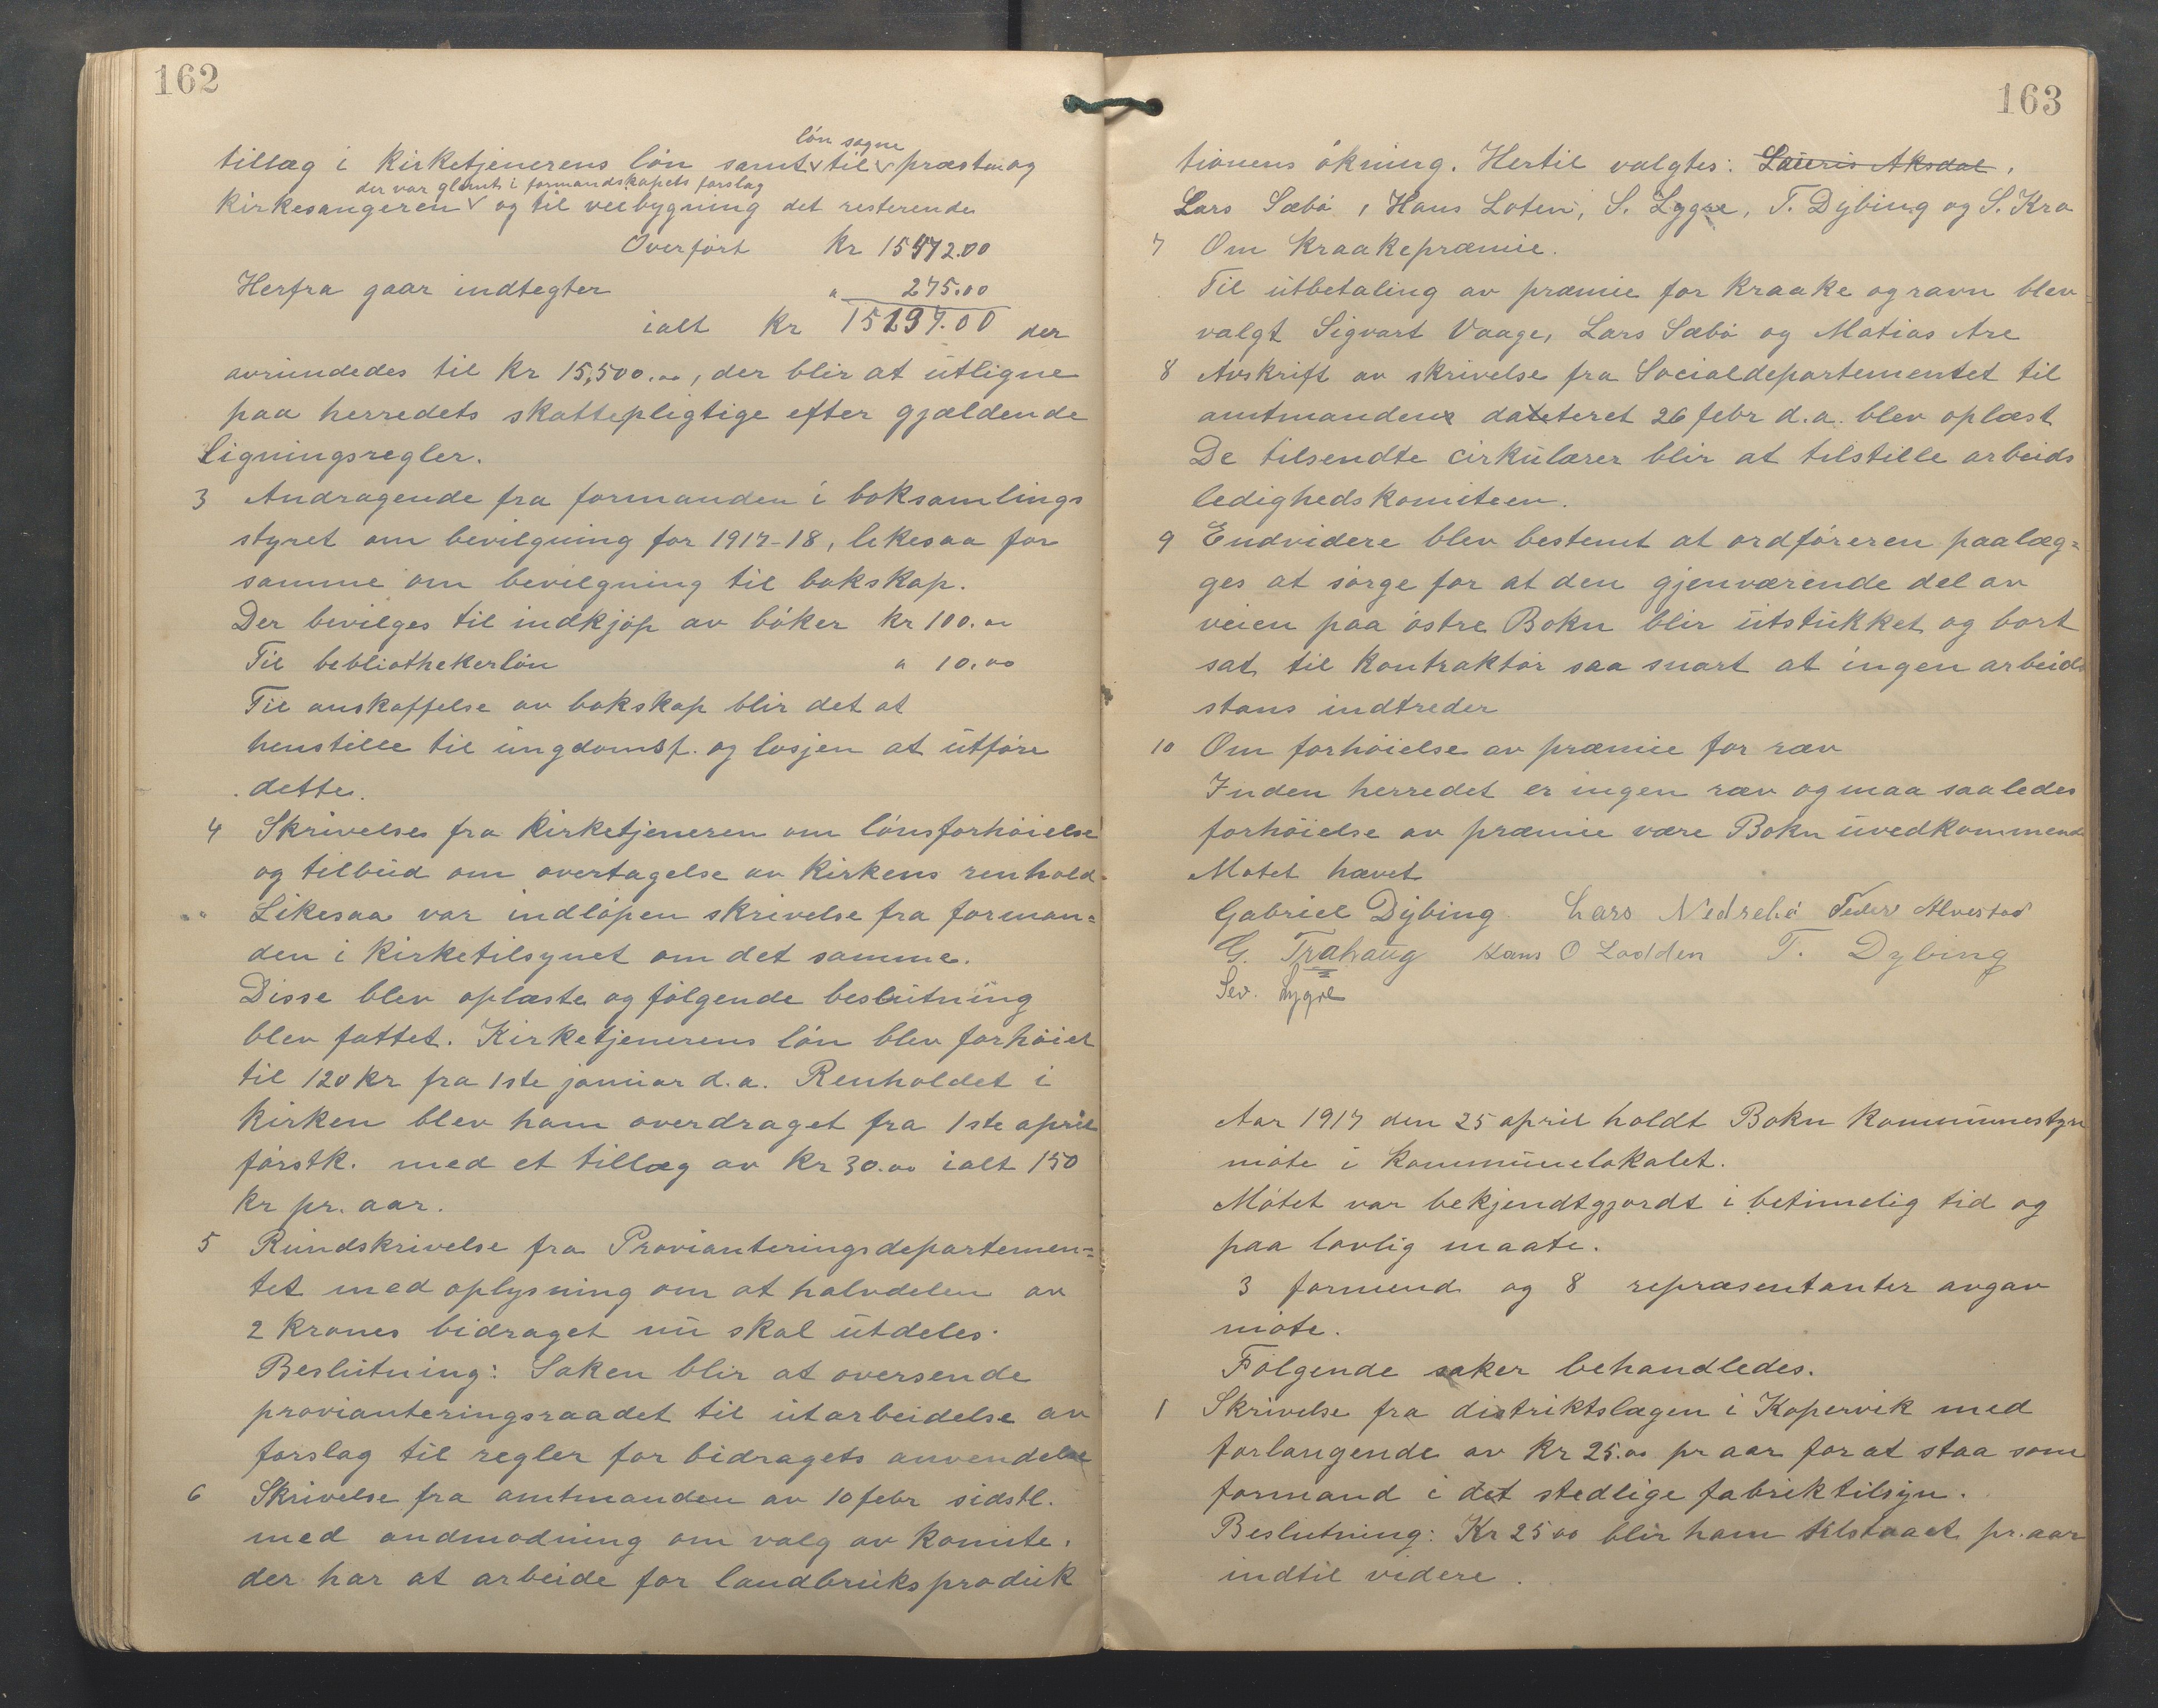 162
løn sogne
tillæg i kirketjenerens løn samt til præsten og
der var glemt i formandskapets forslag
kirkesangeren og til veibygning det resterende
Overført kr 15572.00
Herfra gaar indtegter " 275.00
ialt kr 15297.00 der
avrundedes til kr 15,500.00, der blir at utligne
paa herredets skattepligtige efter gjældende
Ligningsregler.
3 Andragende fra formanden i boksamlings
styret om bevilgning for 1917-18, likesaa for
samme om bevilgning til bokskap.
Der bevilges til indkjøp av bøker kr 100.00
Til bebliothekerløn " 10.00
Til anskaffelse av bokskap blir det at
henstille til ungdomsf. og losjen at utføre
dette.
4 Skrivelses fra kirketjeneren om lønsforhøielse
og tilbud om overtagelse av kirkens renhold.
Likesaa var indløpen skrivelse fra forman=
den i kirketilsynet om det samme.
Disse blev oplæste og følgende beslutning
blev fattet. Kirketjenerens løn blev forhøiet
til 120 kr fra 1ste januar d.a. Renholdet i
kirken blev ham overdraget fra 1ste april
førstk. med et tillæg av kr 30.00 ialt 150
kr pr. aar.
5 Rundskrivelse fra Provianteringsdepartemen=
tet med oplysning om at halvdelen av
2 krones bidraget nu skal utdeles.
Beslutning: Saken blir at oversende
provianteringsraadet til utarbeidelse av
forslag til regler for bidragets anvendelse
6 Skrivelse fra amtmanden av 10 febr sidstl.
med andmodning om valg av komite.
der har at arbeide for landbruksproduk
163
tionens økning. Hertil valgtes: Lauris Aksdal,
Lars Sæbø, Hans Loten, S. Lygre, T. Dybing og S. Kro
7 Om kraakepræmie.
Til utbetaling av præmie for kraake og ravn blev
valgt Sigvart Vaage, Lars Sæbø og Matias Are
8 Avskrift av skrivelse fra Socialdepartementet til
amtmanden dateteret 26 febr d.a. blev oplæst
De tilsendte cirkulærer blir at tilstille arbeids
ledighedskomiteen.
9 Endvidere blev bestemt at ordføreren paalæg=
ges at sørge for at den gjenværende del av
veien paa østre Bokn blir utstukket og bort
sat til kontraktør saa snart at ingen arbeids
stans indtreder
10 Om forhøielse av præmie for ræv
Inden herredet er ingen ræv og maa saaledes
forhøielse av præmie være Bokn uvedkommende
Møtet hævet
Gabriel Dybing. Lars Nedrebø Peder Alvestad
G. Trahaug Hans O Lodden T. Dybing
Sev. Lygre
Aar 1917 den 25 april holdt Bokn kommunestyre
møte i kommunelokalet.
Møtet var bekjendtgjordt i betimelig tid og
paa lovlig maate.
3 formend og 8 repræsentanter avgav
møte.
Følgende saker behandledes.
1 Skrivelse fra distriktslægen i Kopervik med
forlangende av kr 25.00 pr aar for at staa som
formand i det stedlige fabriktilsyn.
Beslutning: Kr 25 00 blir ham tilstaaet pr. aar
indtil videre.